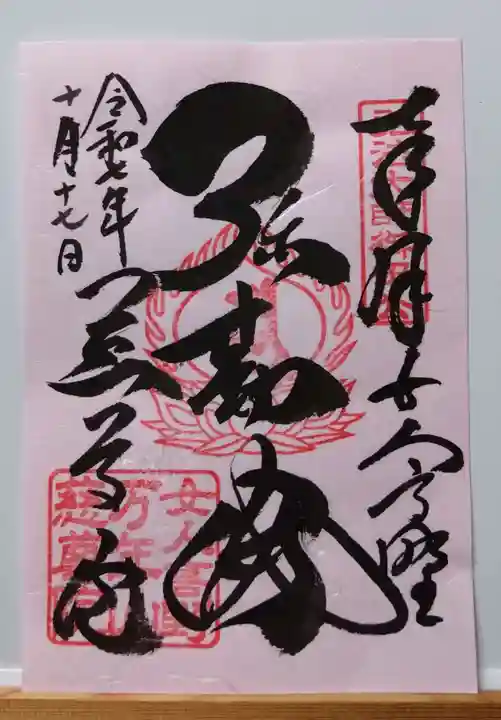 奉拝 女人高野
弥勒佛
慈尊院
令和七年
十月十七日
女人高野
万年山
慈尊院